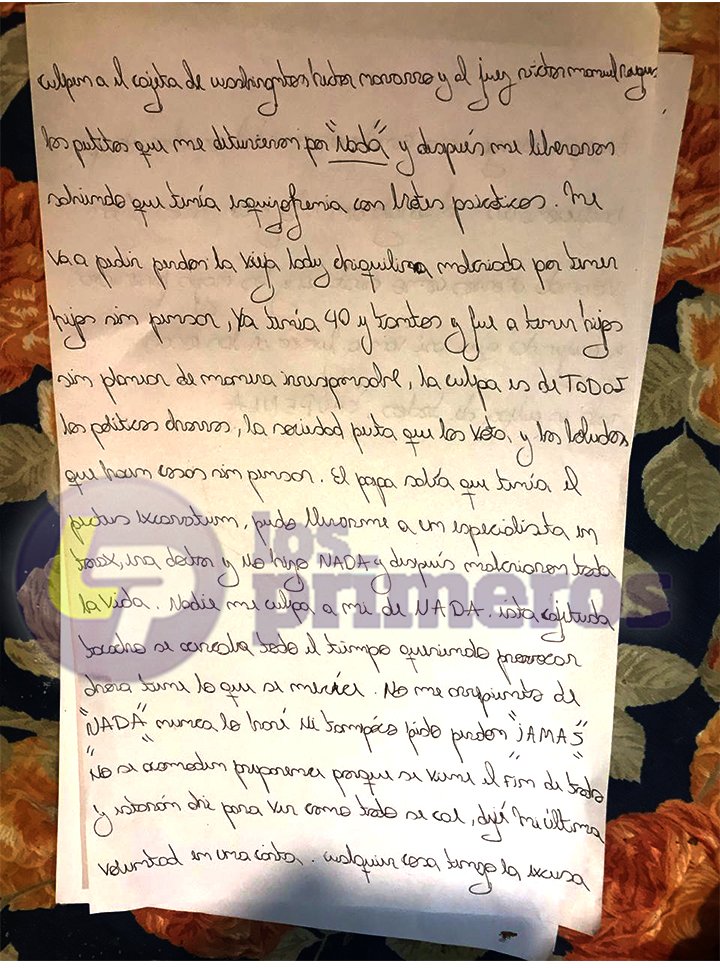 culpen a el cajeta de washington hector navarro y al juez victor manuel
los putitos que me detuvieron por "NADA" y después me liberaron
sabiendo que tenía esquizofrenia con brotes psicóticos. Me
va a pedir perdon la vieja lady chiquilina malcriada por tener
hijos sin pensar, ya tenía 40 y tantos y fue a tener hijos
sin planear de manera irresponsable, la culpa es de TODOS
los politicos chorros, la sociedad puta que los vota y los boludos
que hacen cosas sin pensar. El papa sabía que tenía el
pectus excavatum, pudo llevarme a un especialista en
torax, era doctor y no hizo NADA y después malcriaron toda
la vida. Nadie me culpa a mi de NADA. esta cajetuda
se acercaba todo el tiempo queriendo provocar
ahora tiene lo que se merece. No me arrepiento de
"NADA" nunca lo haré ni tampoco pido perdon "JAMAS"
"No se acomoden preparence porque se viene el FIN de todo
y estarán ahi para ver como todo se cae, dejé mi última
voluntad en una carta. cualquier cosa tengo la excusa
los primeros